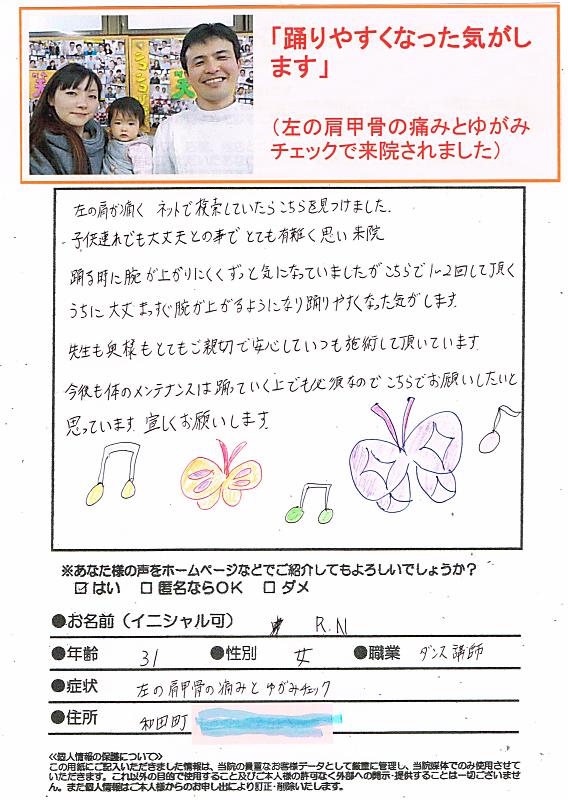 「踊りやすくなった気がし
ます」
（左の肩甲骨の痛みとゆがみ
チェックで来院されました）
左の肩が痛く ネットで検索していたらこちらを見つけました.
子供連れでも大丈夫との事で とても有難く思い 来院
踊る時に腕が上がりにくくずっと気になっていましたがこちらで1~2回して頂く
うちに 大丈 まっすぐ腕が上がるようになり踊りやすくなった気がします.
先生も奥様もとてもご親切で安心していつも施術して頂いています.
今後も体のメンテナンスは踊っていく上でも必須なのでこちらでお願いしたいと
思っています. 宜しくお願いします.
※あなた様の声をホームページなどでご紹介してもよろしいでしょうか？
☑ はい □ 匿名ならOK □ ダメ
●お名前（イニシャル可） R.N
●年齢 31 ●性別 女 ●職業 ダンス講師
●症状 左の肩甲骨の痛みとゆがみチェック
●住所 和田町
≪個人情報の保護について≫
この用紙にご記入いただきました情報は、当院の貴重なお客様データとして厳重に管理し、当院媒体でのみ使用させて
いただきます。これ以外の目的で使用すること及びご本人様の許可なく外部への開示・提供することは一切ございませ
ん。また個人情報はご本人様からのお申し出により訂正・削除いたします。